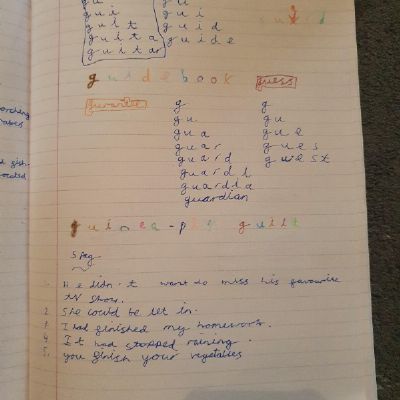 g u
g u i
g u i t
g u i t a
g u i t a r
g u
g u i
g u i d
g u i d e
guidebook
guess
g
gu
gua
guar
guard
guardi
guardia
guardian
g
gu
gue
gues
guest
guinea-pig guilt
Spag
1. He didn't want to miss his favourite
TV show.
2. She could be let in.
3. I had finished my homework.
4. It had stopped raining.
5. you finish your vegetables